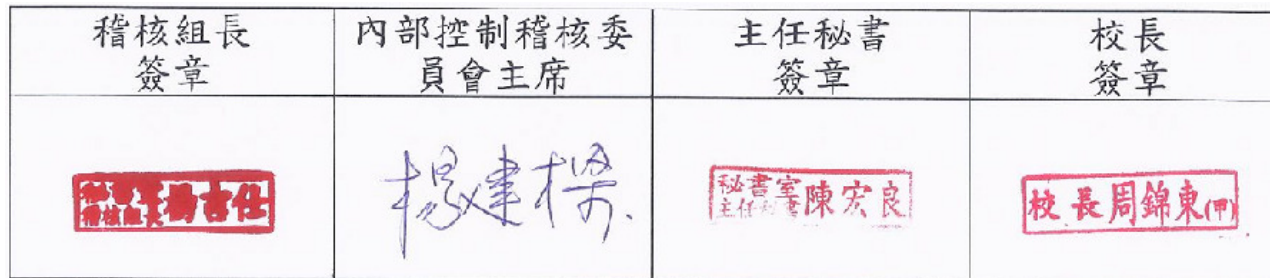 稽核組長
簽章
內部控制稽核委
員會主席
主任秘書
簽章
校長
簽章
稽核組長
楊吉仕
楊建樑
秘書室
主任秘書
陳宏良
校長周錦東(甲)